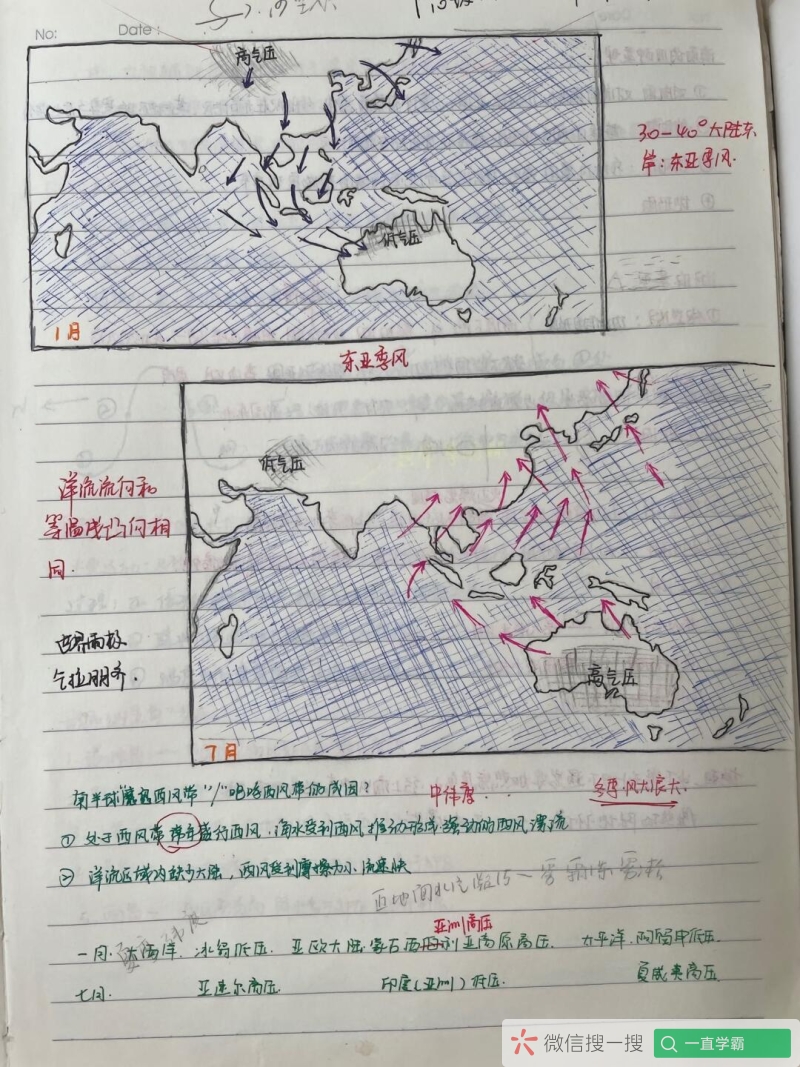 No:
Date:
高气压
30-40°大陆东
岸：东亚季风.
低气压
1月
东亚季风
低气压
洋流流向和
等温线凸向相
同.
世界而极
气拉朋齐.
高气压
7月
南半球"魔鬼西风带"/"咆哮西风带的成因?
中纬度
冬季.风大浪大.
① 处于西风带 常年盛行西风，海水受到西风推动形成强劲的西风漂流
② 洋流区域内缺少大陆，西风受到摩擦力小.流速快
亚洲高压
一月. 大西洋. 冰岛低压. 亚欧大陆 蒙古西伯利亚高原高压. 太平洋. 阿留申低压.
七月. 亚速尔高压. 印度(亚洲)低压. 夏威夷高压
微信搜一搜
一直学霸